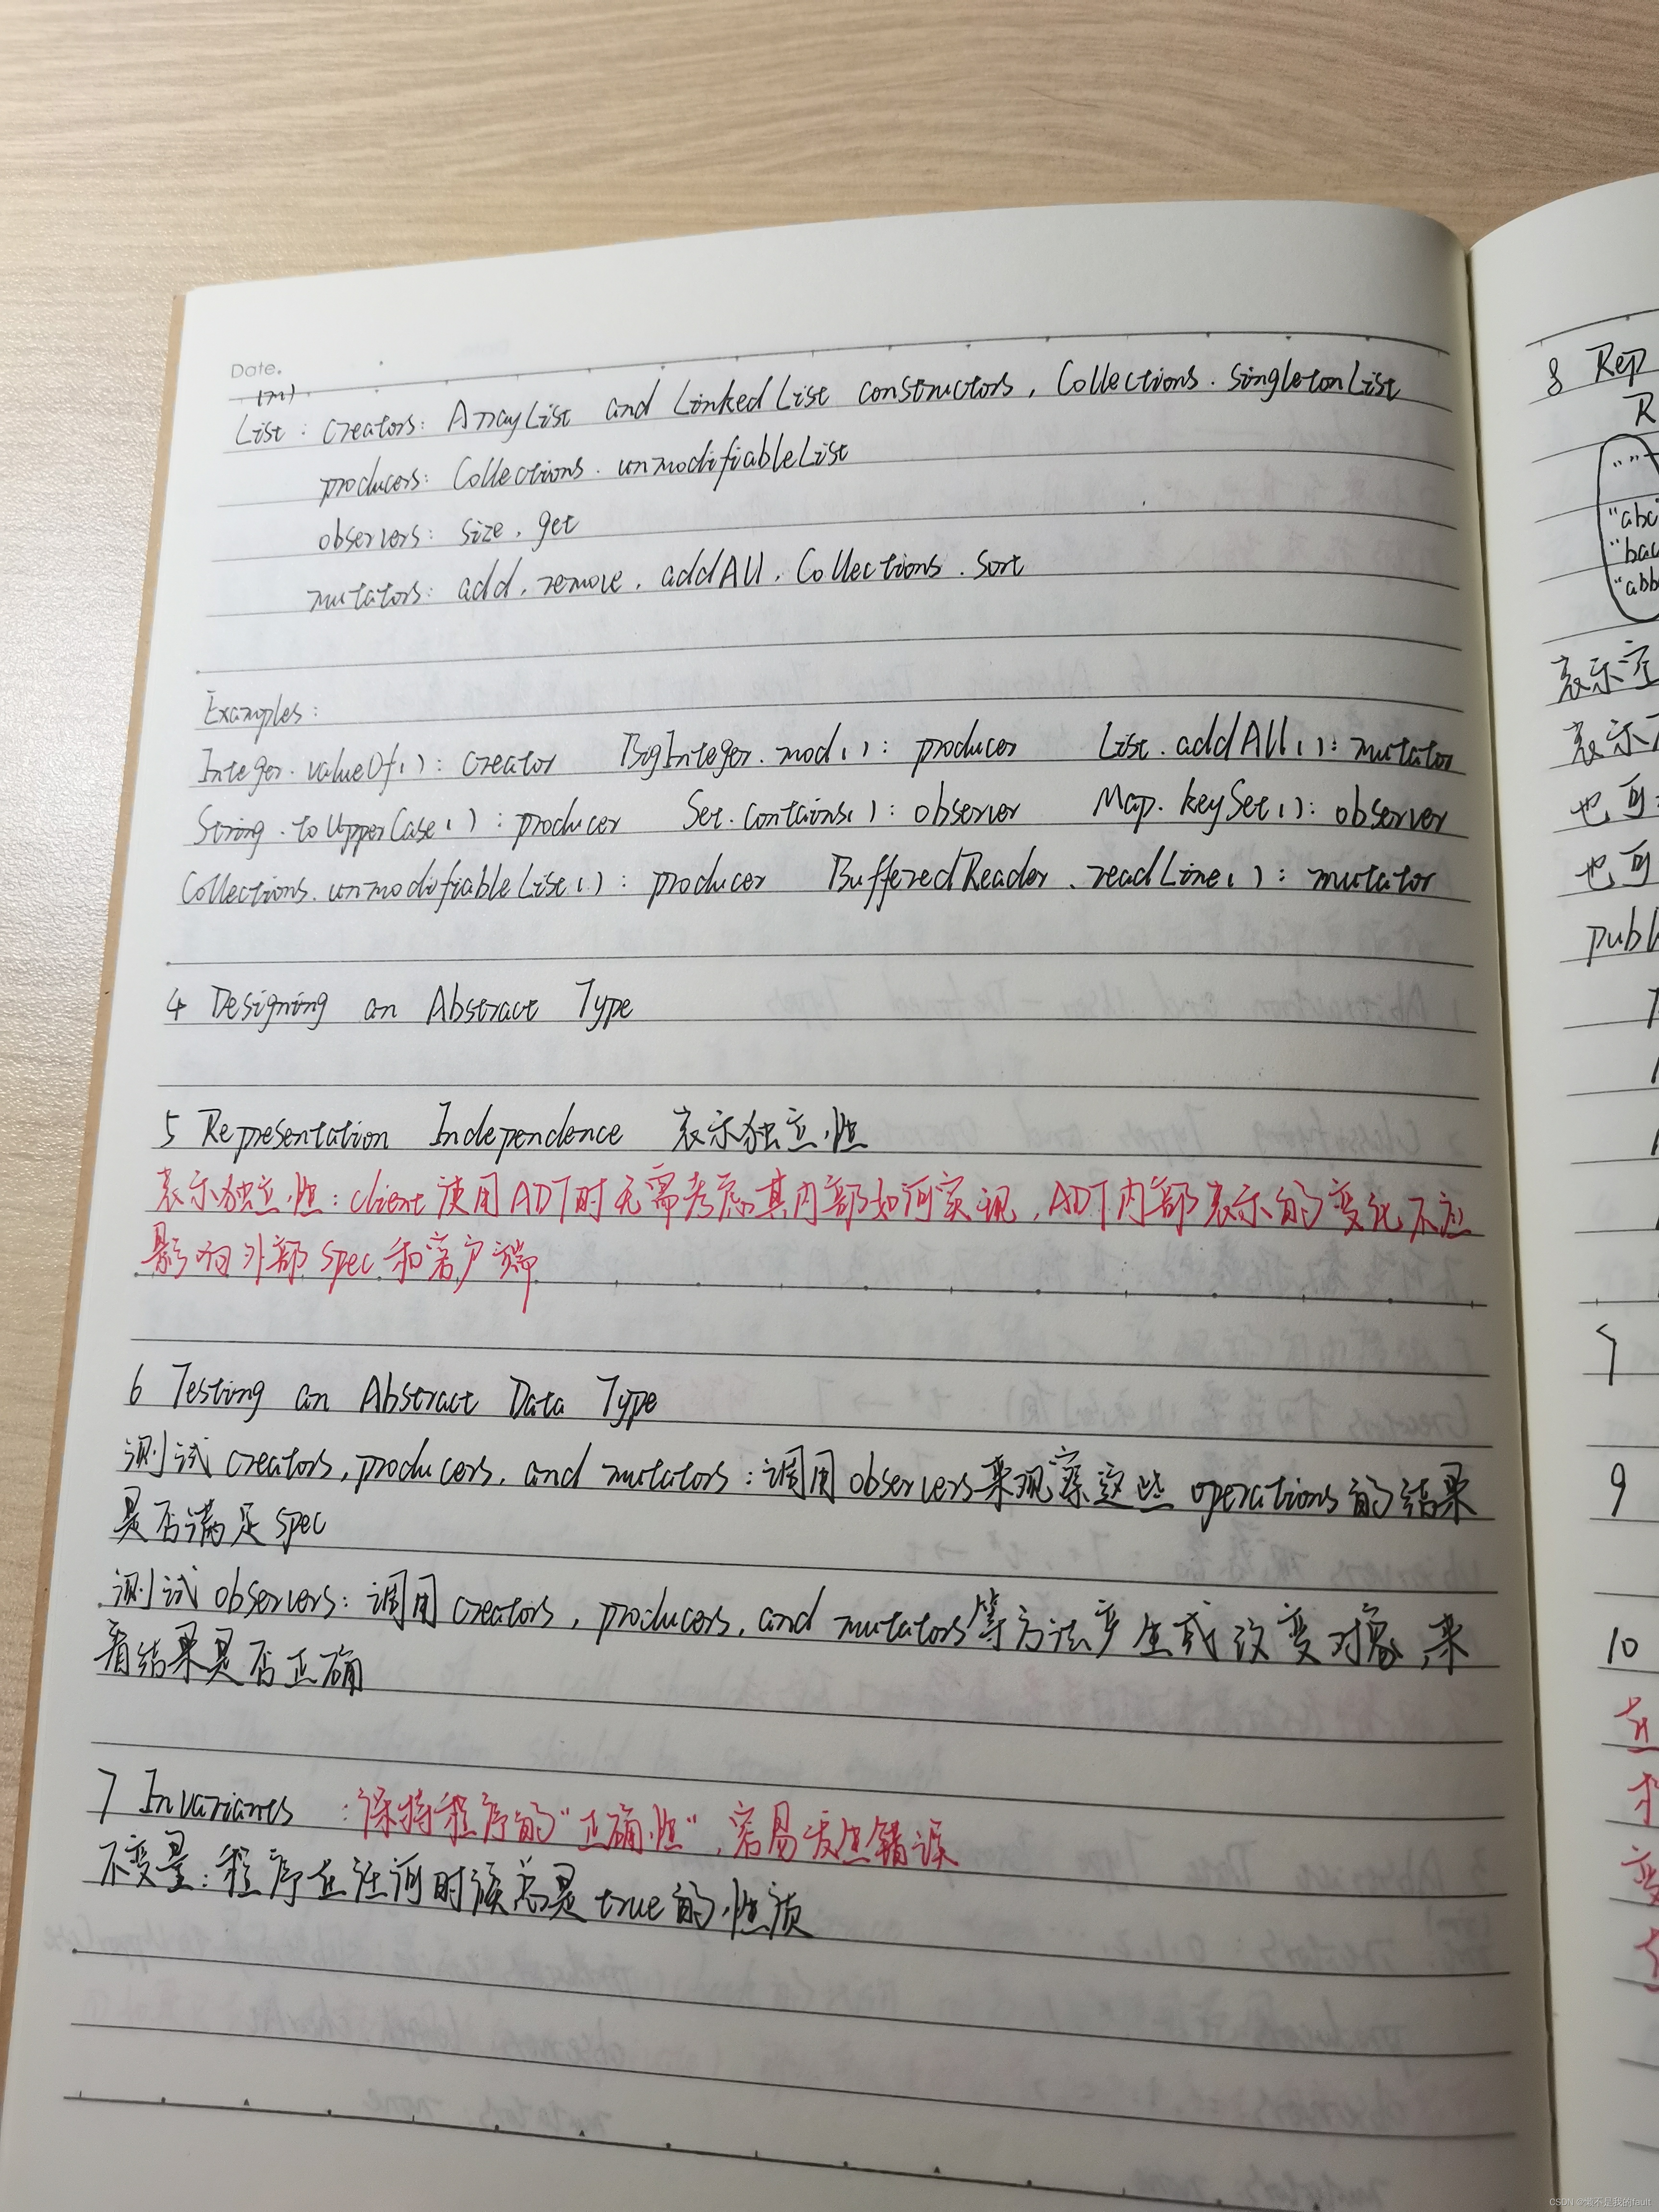 Date.
(m)
List : creators: ArrayList and LinkedList constructors, Collections.singletonList
producers: Collections.unmodifiableList
observers: size, get
mutators: add, remove, addAll, Collections.sort
Examples:
Integer.valueOf(): creator BigInteger.mod(): producer List.addAll(): mutator
String.toUpperCase(): producer Set.contains(): observer Map.keySet(): observer
Collections.unmodifiableList(): producer BufferedReader.readLine(): mutator
4 Designing an Abstract Type
5 Representation Independence 表示独立性
表示独立性: client使用ADT时无需考虑其内部如何实现,ADT内部表示的变化不应
影响外部spec和客户端
6 Testing an Abstract Data Type
测试creators, producers, and mutators:调用observers来观察这些operations的结果
是否满足spec
测试observers:调用creators, producers, and mutators等方法产生或改变对象,来
看结果是否正确
7 Invariants :保持程序的"正确性",容易发生错误
不变量:程序在任何时候总是true的性质
8 Rep
R
""
"abc
"bac
"abb
表示空
表示
也可
也可
publ
9
10
CSDN @懒不是我的fault